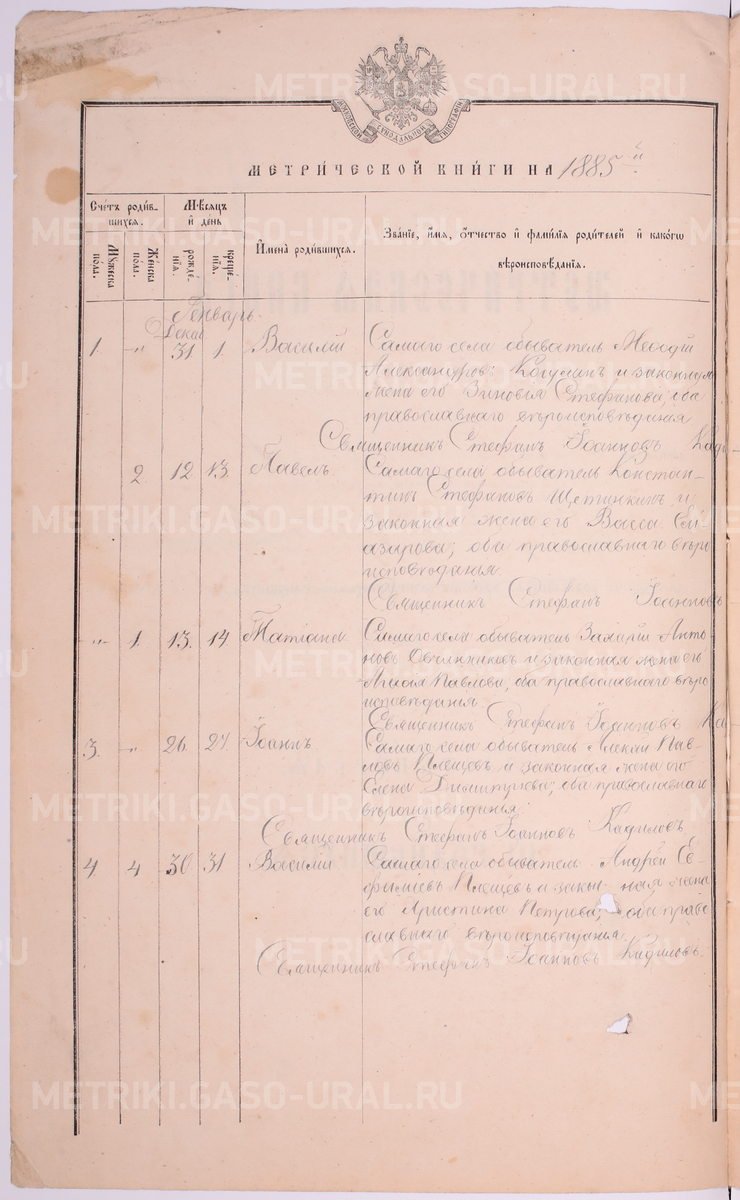 МОСКОВСКОЙ СѴНОДАЛЬНОЙ ТИПОГРАФІИ
МЕТРИЧЕСКОЙ КНИГИ НА 1885й
Счетъ родившихся.
Мѣсяцъ и день
Имена родившихся.
Званіе, имя, отчество и фамилія родителей и какогѡ вѣроисповѣданія.
Мужеска пола.
Женска пола.
рожденія.
крещенія.
Генварь.
Декаб
1. „ 31 1. Василій Самаго села обыватель Меѳодій
Александровъ и законная
жена его Зиновія Стефанова, оба
православнаго вѣроисповѣданія
Священникъ Стефанъ Іоанновъ Кади
2. 12 13. Павелъ. Самаго села обыватель Констан-
тинъ Стефановъ Щетинкинъ и
законная жена его Васса Елі-
азарова; оба православнаго вѣро
исповѣданья
Священникъ Стефанъ Іоанновъ
„ 1. 13. 14 Татіана Самаго села обыватель Захарій Анто-
новъ Овчинниковъ и законная жена его
Павлова, оба православнаго вѣро
исповѣданья
Священникъ Стефанъ Іоанновъ Ка
3. „ 26. 27. Іоаннъ. Самаго села обыватель Алексій Пав-
ловъ Плещевъ и законная жена его
Елена Димитріева; оба православнаго
вѣроисповѣданья.
Священникъ Стефанъ Іоанновъ Кадиловъ
4 4 30 31 Василій Самаго села обыватель Андрей Ев-
фиміевъ Плещевъ и закон-ная жена
его Христина Петрова, оба право
славнаго вѣроисповѣданія.
Священникъ Стефанъ Іоанновъ Кадиловъ.
METRIKI.GASO-URAL.RU